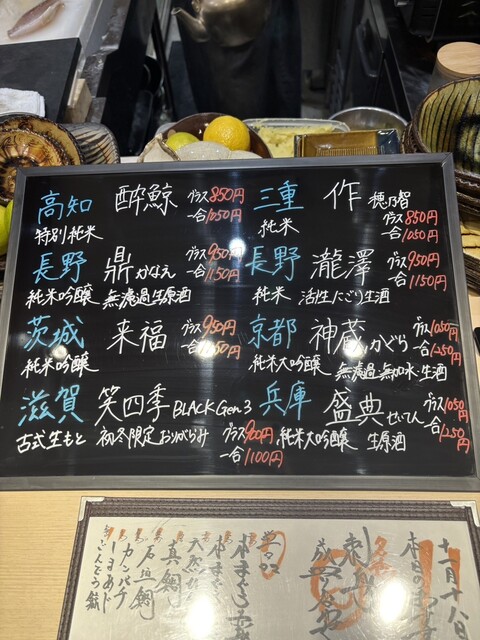 高知 酔鯨 グラス850円
特別純米 一合1050円
長野 鼎かなえ グラス950円
純米吟醸 無濾過生原酒 一合1150円
茨城 来福 グラス950円
純米吟醸 一合1150円
滋賀 笑四季 BLACK Gen.3
古式生もと 初冬限定おりがらみ グラス900円
一合1100円
三重 作 穂乃智 グラス850円
純米 一合1050円
長野 瀧澤 グラス950円
純米 活性にごり生酒 一合1150円
京都 神蔵かぐら グラス1050円
純米大吟醸 無濾過無加水生酒 一合1250円
兵庫 盛典せいてん グラス1050円
純米大吟醸 生原酒 一合1250円
十一月十八日
真鯛
石垣鯛
カンパチ
しまあじ